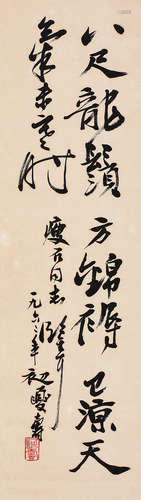 八尺龍鬚方錦褥已涼天
氣未寒時
瘦石同志
一九六三年初夏